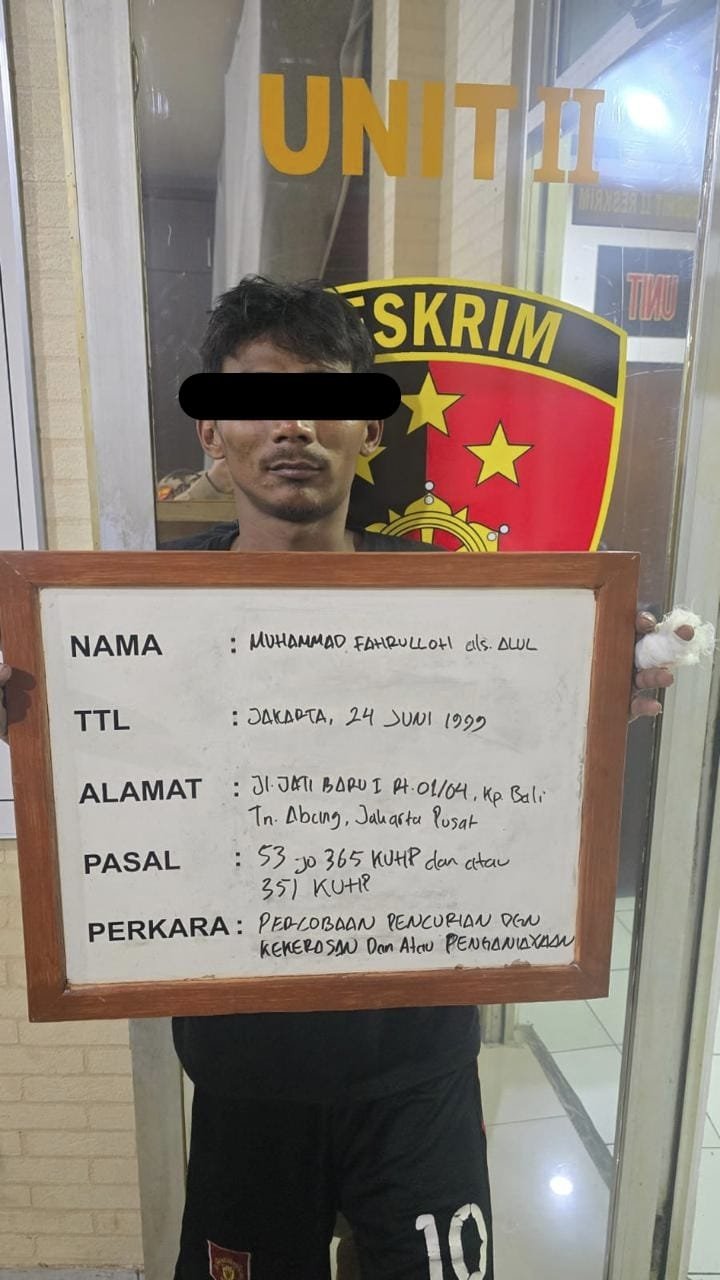 UNIT II
RESKRIM
UNIT II RESKRIM
UNIT
NAMA : MUHAMMAD FAHRULLOH als. ALUL
TTL : JAKARTA, 24 JUNI 1999
ALAMAT : Jl. JATI BARU I Rt. 01/04, Kp. Bali
Tn. Abang, Jakarta Pusat
PASAL : 53 jo 365 KUHP dan atau
351 KUHP
PERKARA : PERCOBAAN PENCURIAN DGN
KEKERASAN Dan Atau PENGANIAYAAN
10